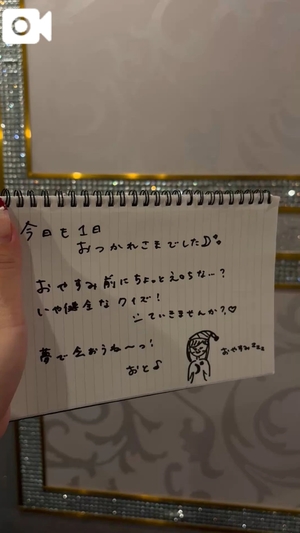 今日も1日
おつかれさまでしたD°。
おやすみ前にちょっとえ○ちな…？
いや健全なクイズ！
していきませんか？♡
夢で会おうね〜っ！
おと♪
おやすみ